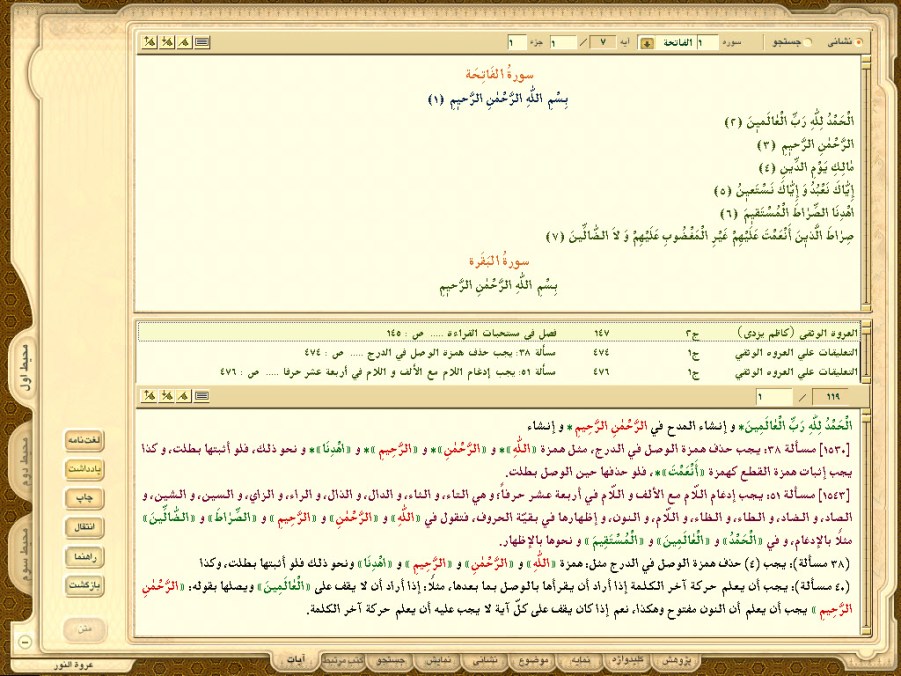 نشانی جستجو سوره ۱ الفاتحة آیه ۷ / ۱ جزء ۱
سورةُ الفَاتِحَة
بِسْمِ اللَّهِ الرَّحْمٰنِ الرَّحیمِ ﴿۱﴾
الْحَمْدُ لِلَّهِ رَبِّ الْعٰالَمینَ ﴿۲﴾
الرَّحْمٰنِ الرَّحیمِ ﴿۳﴾
مٰالِكِ یَوْمِ الدِّینِ ﴿۴﴾
إِیّٰاكَ نَعْبُدُ وَ إِیّٰاكَ نَسْتَعینُ ﴿۵﴾
اهْدِنَا الصِّرٰاطَ الْمُسْتَقیمَ ﴿۶﴾
صِرٰاطَ الَّذینَ أَنْعَمْتَ عَلَیْهِمْ غَیْرِ الْمَغْضُوبِ عَلَیْهِمْ وَ لاَ الضّٰالِّینَ ﴿۷﴾
سورةُ البَقَرة
بِسْمِ اللَّهِ الرَّحْمٰنِ الرَّحیمِ
العروة الوثقی (کاظم یزدی) ج۲ ۱۴۷ فصل في مستحبات القراءة ..... ص : ۱۴۵
التعلیقات علي العروه الوثقي ج۱ ۴۷۴ مسألة ۳۸: یجب حذف همزة الوصل في الدرج ..... ص : ۴۷۴
التعلیقات علي العروه الوثقي ج۱ ۴۷۶ مسألة ۵۱: یجب إدغام اللام مع الألف و اللام في أربعة عشر حرفا ..... ص : ۴۷۶
۱۱۹ / ۱
الْحَمْدُ لِلّهِ رَبِّ الْعَالَمِینَ* و إنشاء المدح في الرَّحْمنِ الرَّحِیمِ* و إنشاء
[۱۵۳۰] مسألة ۳۸: یجب حذف همزة الوصل في الدرج، مثل همزة «اللّهِ»* و «الرَّحْمنِ»* و «الرَّحِیمِ»* و «اهْدِنَا»* و نحو ذلك، فلو أثبتها بطلت، و كذا
یجب إثبات همزة القطع كهمزة «أَنْعَمْتَ»*، فلو حذفها حین الوصل بطلت.
[۱۵۴۳] مسألة ۵۱: یجب إدغام اللام مع الألف و اللّام في أربعة عشر حرفاً؛ و هي التاء، و الثاء، و الدال، و الذال، و الراء، و الزاي، و السین، و الشین، و
الصاد، و الضاد، و الطاء، و الظاء، و اللّام، و النون، و إظهارها في بقیّة الحروف، فتقول في «اللّهِ» و «الرَّحْمنِ» و «الرَّحِیمِ» و «الصِّرَاطَ» و «الضَّالِّینَ»
مثلًا بالإدغام، و في «الْحَمْدُ» و «الْعَالَمِینَ» و «الْمُسْتَقِیمَ» و نحوها بالإظهار.
(۳۸ مسألة): یجب (۴) حذف همزة الوصل في الدرج مثل: همزة «اللّهِ» و «الرَّحْمنِ» و «الرَّحِیمِ» و «اهْدِنَا» ونحو ذلك فلو أثبتها بطلت، وكذا
(۴۰ مسألة): یجب أن یعلم حركة آخر الكلمة إذا أراد أن یقرأها بالوصل بما بعدها، مثلًا: إذا أراد أن لا یقف على «الْعَالَمِینَ» ویصلها بقوله: «الرَّحْمنِ
الرَّحِیمِ» یجب أن یعلم أن النون مفتوح وهكذا، نعم إذا كان یقف على كلّ آیة لا یجب علیه أن یعلم حركة آخر الكلمة.
محیط اول
محیط دوم
محیط سوم
لغت‌نامه
یادداشت
چاپ
انتقال
راهنما
بازگشت
متن
پژوهش کلیدواژه نمایه موضوع نشانی نمایش جستجو کتب مرتبط آیات
عروة النور